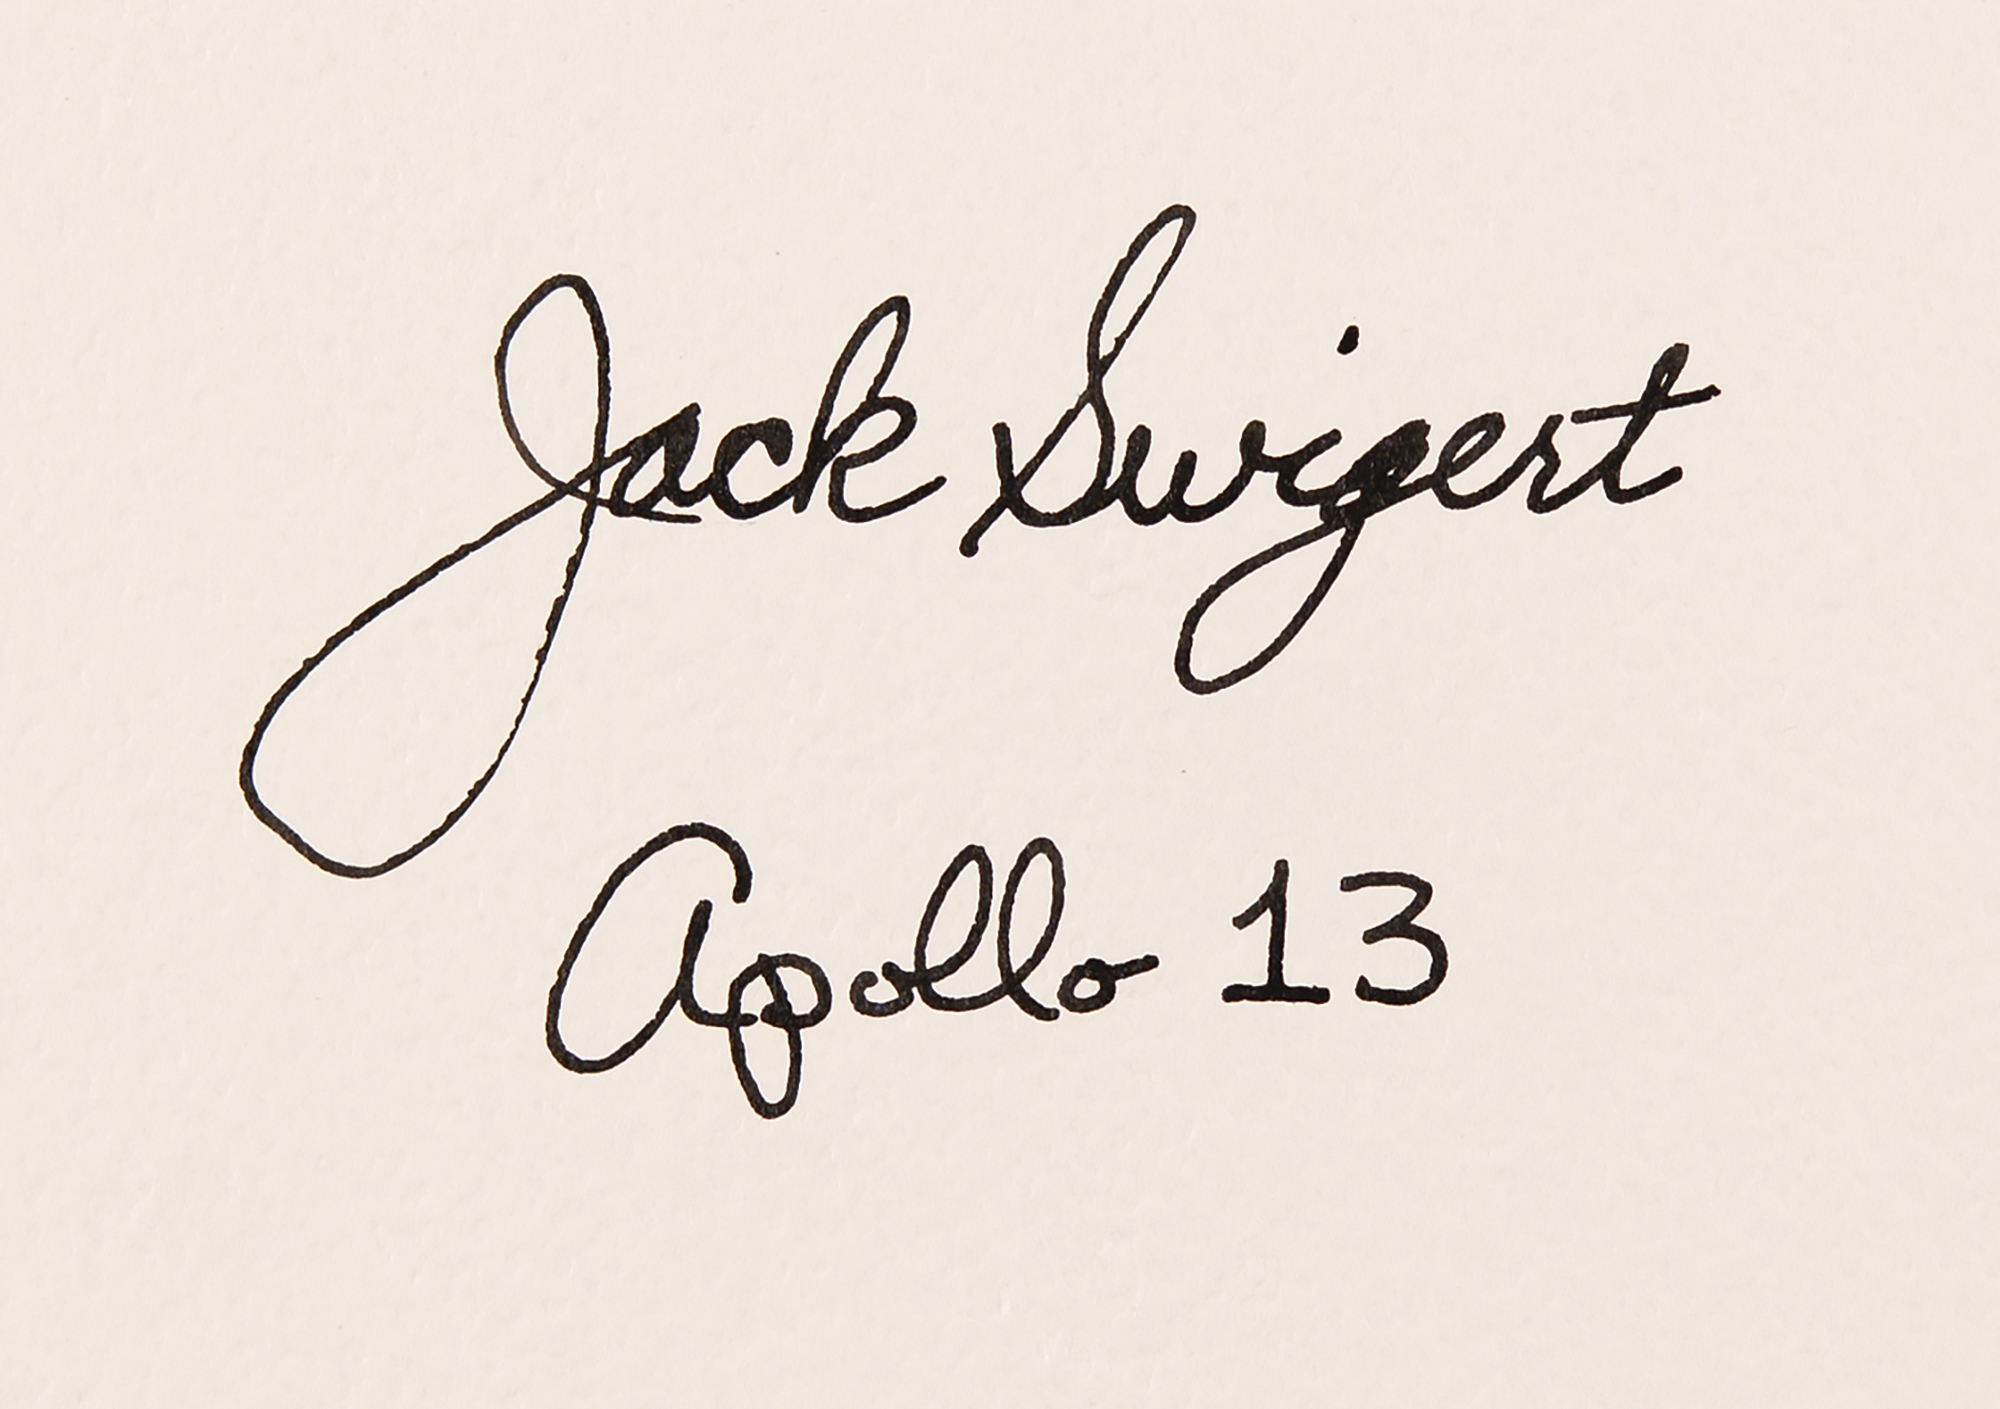 Jack Swigert
Apollo 13